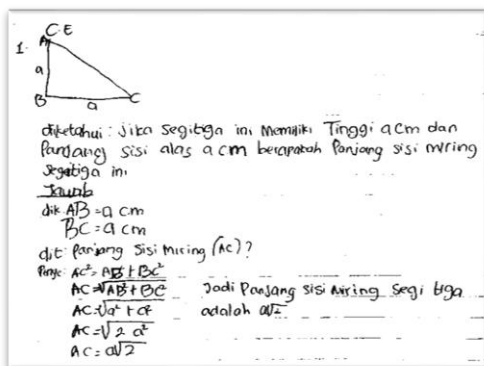 C.E
1.
A
a
B
a
C
diketahui : Jika segitiga ini Memiliki Tinggi a cm dan
Panjang sisi alas a cm berapakah Panjang sisi miring
segitiga ini
Jawab
dik AB = a cm
BC = a cm
dit: Panjang sisi Miring (AC)?
AC² = AB² + BC²
AC = √AB² + BC²
Jadi Panjang sisi Miring segi tiga
AC = √a² + a²
adalah a√2
AC = √2 a²
AC = a√2